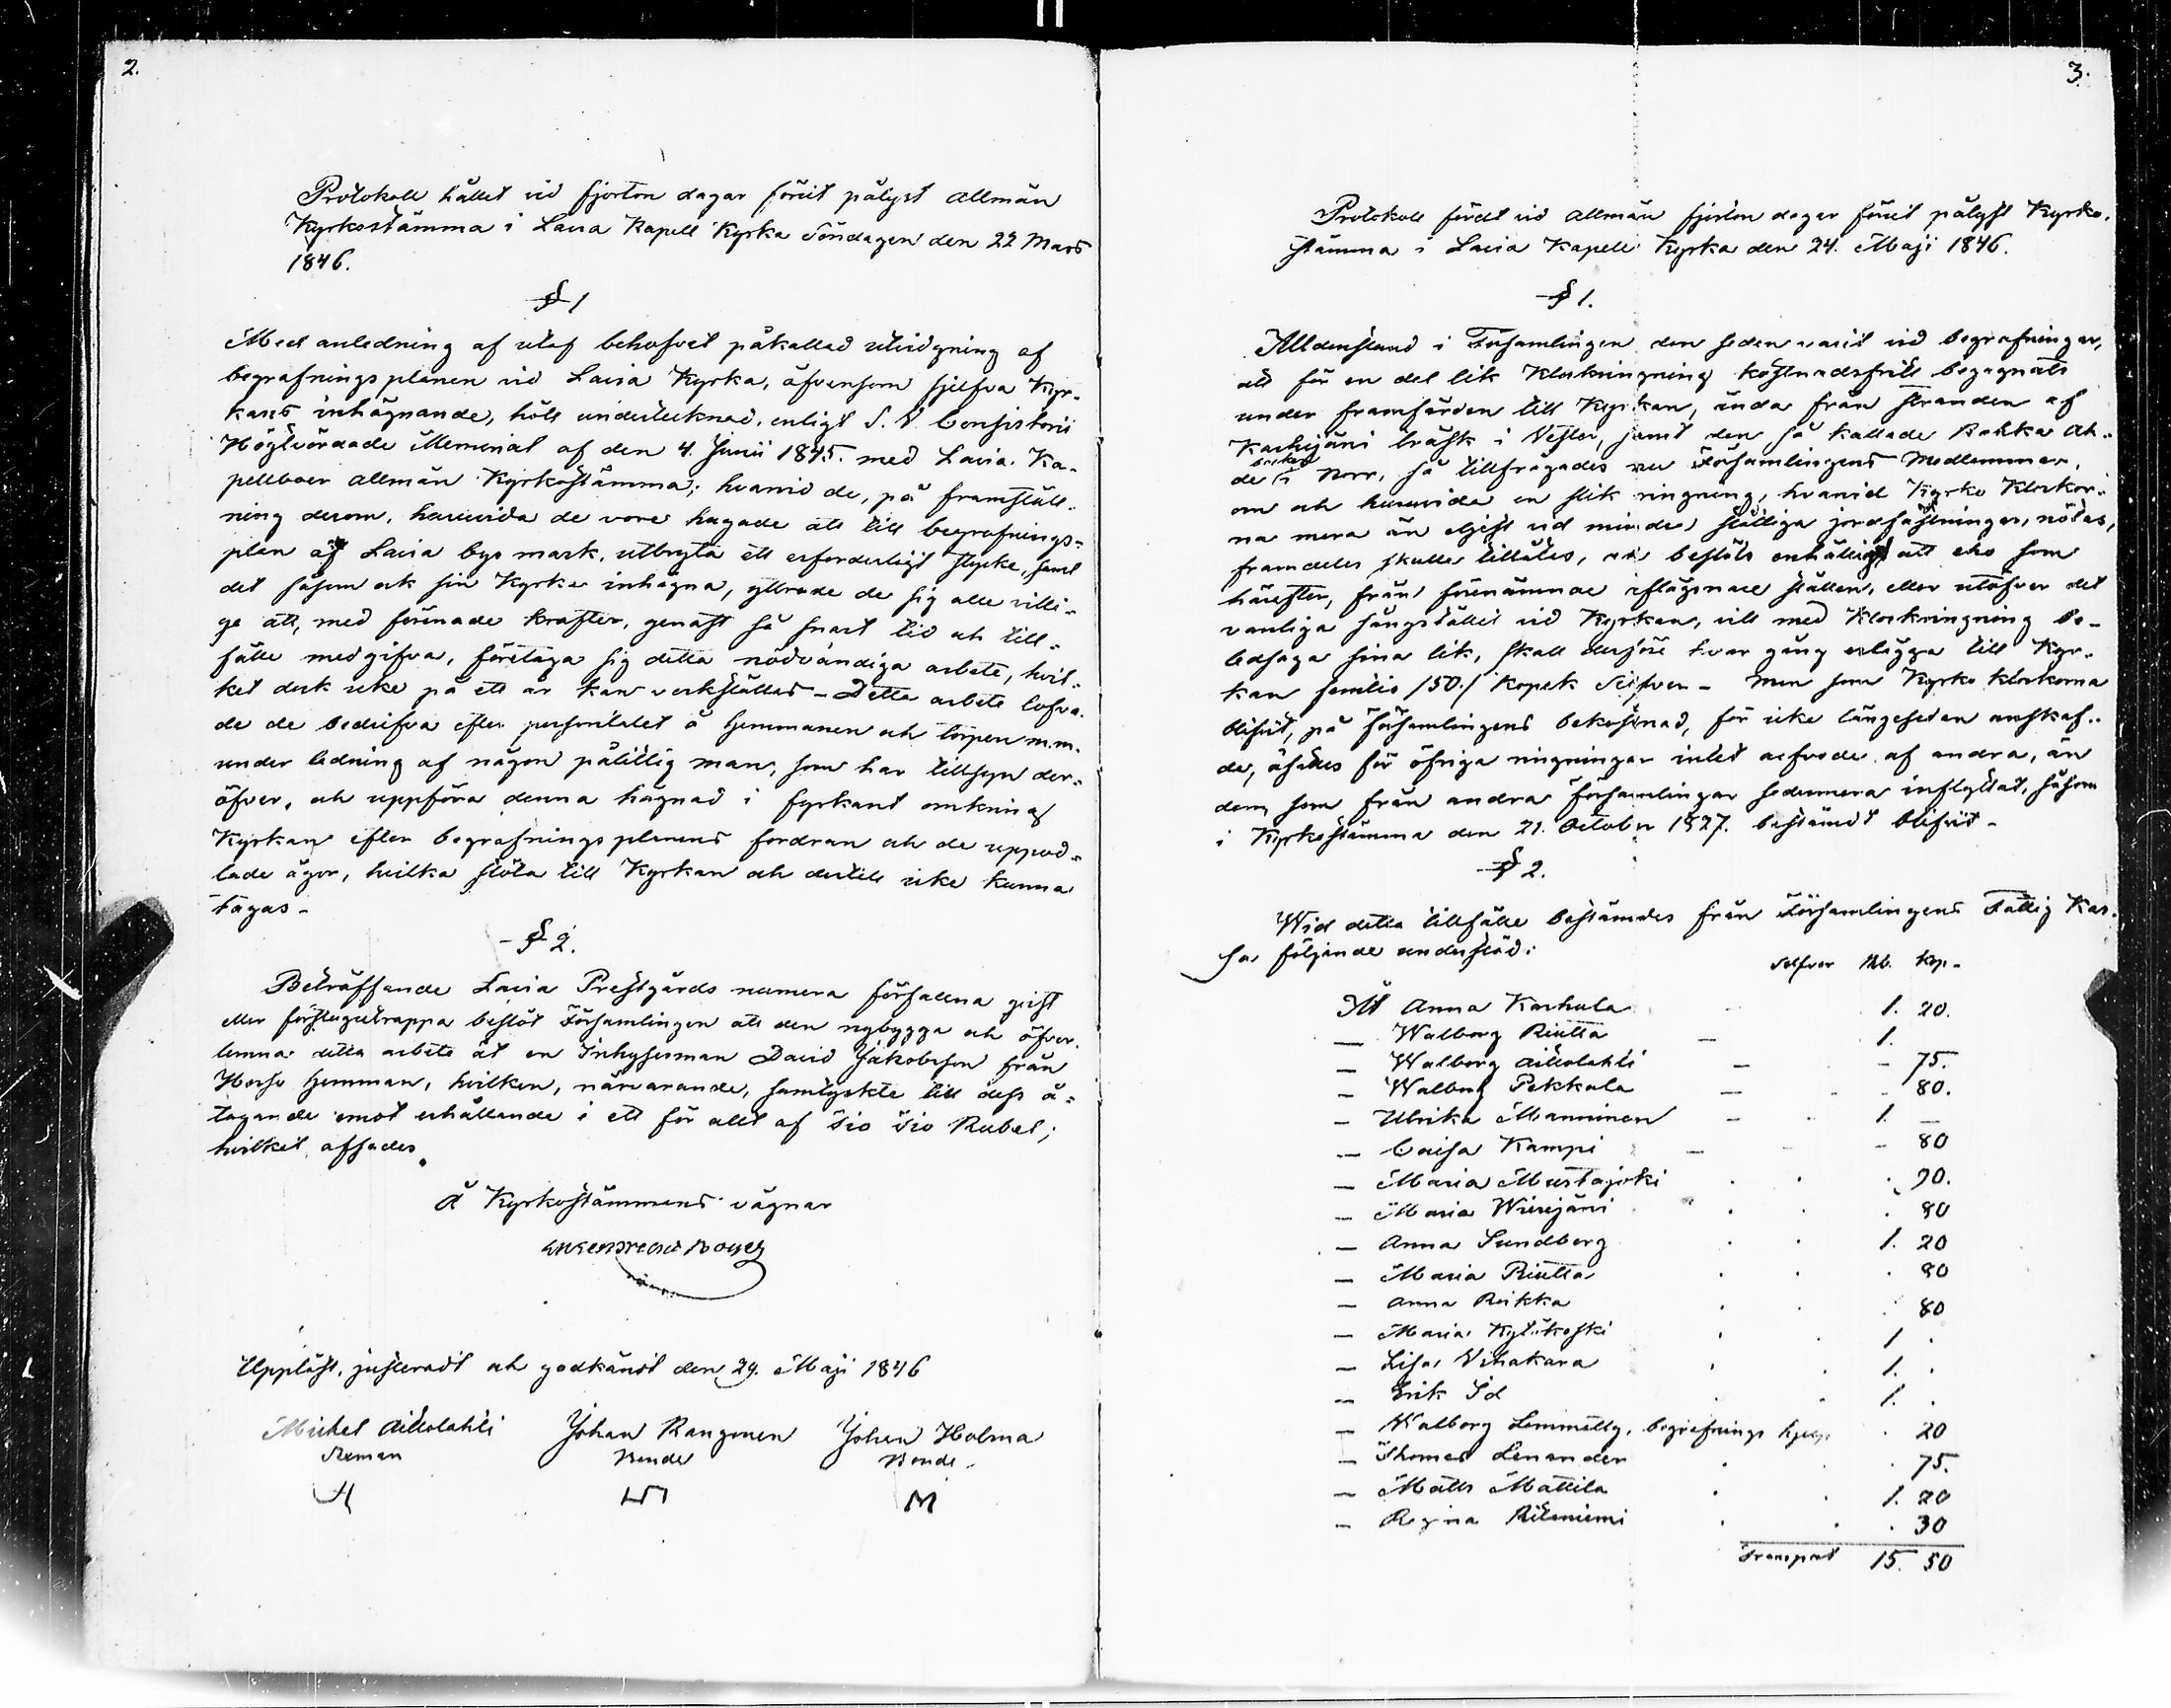 2.
Protokoll hållet vid fjorton dagar förut pålyst allmän
Kyrkostämma i Lavia Kapell Kyrka Söndagen den 22 Mars
1846.
§ 1
Med anledning af utaf behofvet påkallad utvidgning af
begrafningsplanen vid Lavia Kyrka, äfvensom sjelfva Kyr-
kans inhägnande, höll undertecknad, enligt S. V. Consistorii
Högtvördade Memorial af den 4. Junii 1845. med Lavia Ka-
pellboer allmän Kyrkostämma; hvarvid de, på framställ-
ning derom, huruvida de vore hugade att till begrafnings-
plan af Lavia bys mark, utbryta ett erforderligt stycke, samt
det såsom ock sin Kyrka inhägna, yttrade de sig alle villi-
ge att, med förenade krafter, genast så snart tid och till-
fälle medgifva, företaga sig detta nödvändiga arbete, hvil-
ket dock icke på ett år kan verkställas – Detta arbete lofva-
de de bedrifva efter personitalet å hemmanen och torpen m.m.
under ledning af någon pålitlig man, som har tillsyn der-
öfver, och uppföra denna hägnad i fyrkant omkring
Kyrkan efter begrafningsplanens fordran och de uppod-
lade ägor, hvilka stöta till Kyrkan och dertill icke kunna
tagas –
§ 2.
Beträffande Lavia Prestgårds numera förfallna
eller förstugutrappa beslöt Församlingen att den nybygga och öfver-
lemna detta arbete åt en Inhysesman David Jakobsson från
hemman, hvilken, närvarande, samtyckte till dess å-
tagande emot erhållande i ett för allt af tio tio Rubel;
hvilket affades.
Å Kyrkostämmans vägnar
Uppläst, justeradt och godkändt den 24. Maji 1846
Michel Aittolahti Johan Rangonen Johan Holma
Sexman Bonde Bonde.
3.
Protokoll fördt vid allmän fjorton dagar förut pålyst Kyrko-
stämma i Lavia Kapell Kyrka den 24. Maji 1846.
§ 1.
Alldenstund i Församlingen den seden varit vid begrafningar,
att för en del lik Klockringning kostnadsfritt begagnats
under framfärden till Kyrkan, ända från stranden af
Karhijärvi träsk i Vester, samt den så kallade
de i Norr, så tillfrågades nu Församlingens Medlemmar,
om och huruvida en slik ringning, hvarvid Kyrko Klockor-
na mera än eljest vid mindre ståtliga jordfästningar, nötas,
framdeles skulle tillåtas, och beslöts enhälligt att eho som
härefter, från förenämnde aflägsnare ställen, eller utöfver det
vanliga sångstället vid Kyrkan, vill med Klockringning be-
ledsaga sina lik, skall derföre hvar gång erlägga till Kyr-
kan femtio /50./ Kopek Silfver – Men som Kyrko klockorna
blifvit, på Församlingens bekostnad, för icke längesedan anskaf-
de, äskades för öfriga ringningar intet arfvode af andra, än
dem, som från andra församlingar sedermera inflyttat, såsom
i Kyrkostämma den 21. October 1827. bestämdt blifvit –
§ 2.
Wid detta tillfälle bestämdes från Församlingens Fattig Kas-
sa följande understöd:
Silfver Rb. Kop.
Åt Anna Karhula 1. 20.
— Walborg Riutta — 1.
— Walborg Aittolahti — - 75.
— Walborg Pekkala — - 80.
— Ulrika Manninen - 1. —
— Caisa Kampi - 80
— Maria Mustajoki 90.
— Maria Wiirijärvi 80
— Anna Sundberg 1. 20
— Maria Riutta 80
— Anna Reikka 80
— Maria Kyläkoski 1 .
— Lisa Vihakara 1. .
— Erik Id 1. .
— Walborg Lemmätty, begrafnings hjelp 20
— Thomas Lenander 75.
— Matts Mattila 1. 20
— Regina Riitaniemi 30
Transport 15. 50